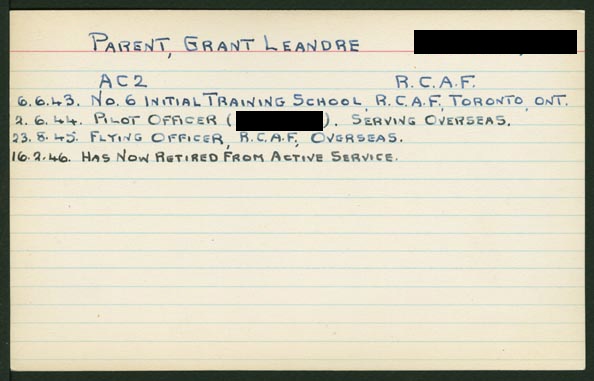 PARENT, GRANT LEANDRE
AC2 R.C.A.F.
6.6.43. No. 6 INITIAL TRAINING SCHOOL, R.C.A.F., TORONTO, ONT.
2.6.44. PILOT OFFICER ( ). SERVING OVERSEAS.
23.8.45. FLYING OFFICER, R.C.A.F., OVERSEAS.
16.2.46. HAS NOW RETIRED FROM ACTIVE SERVICE.